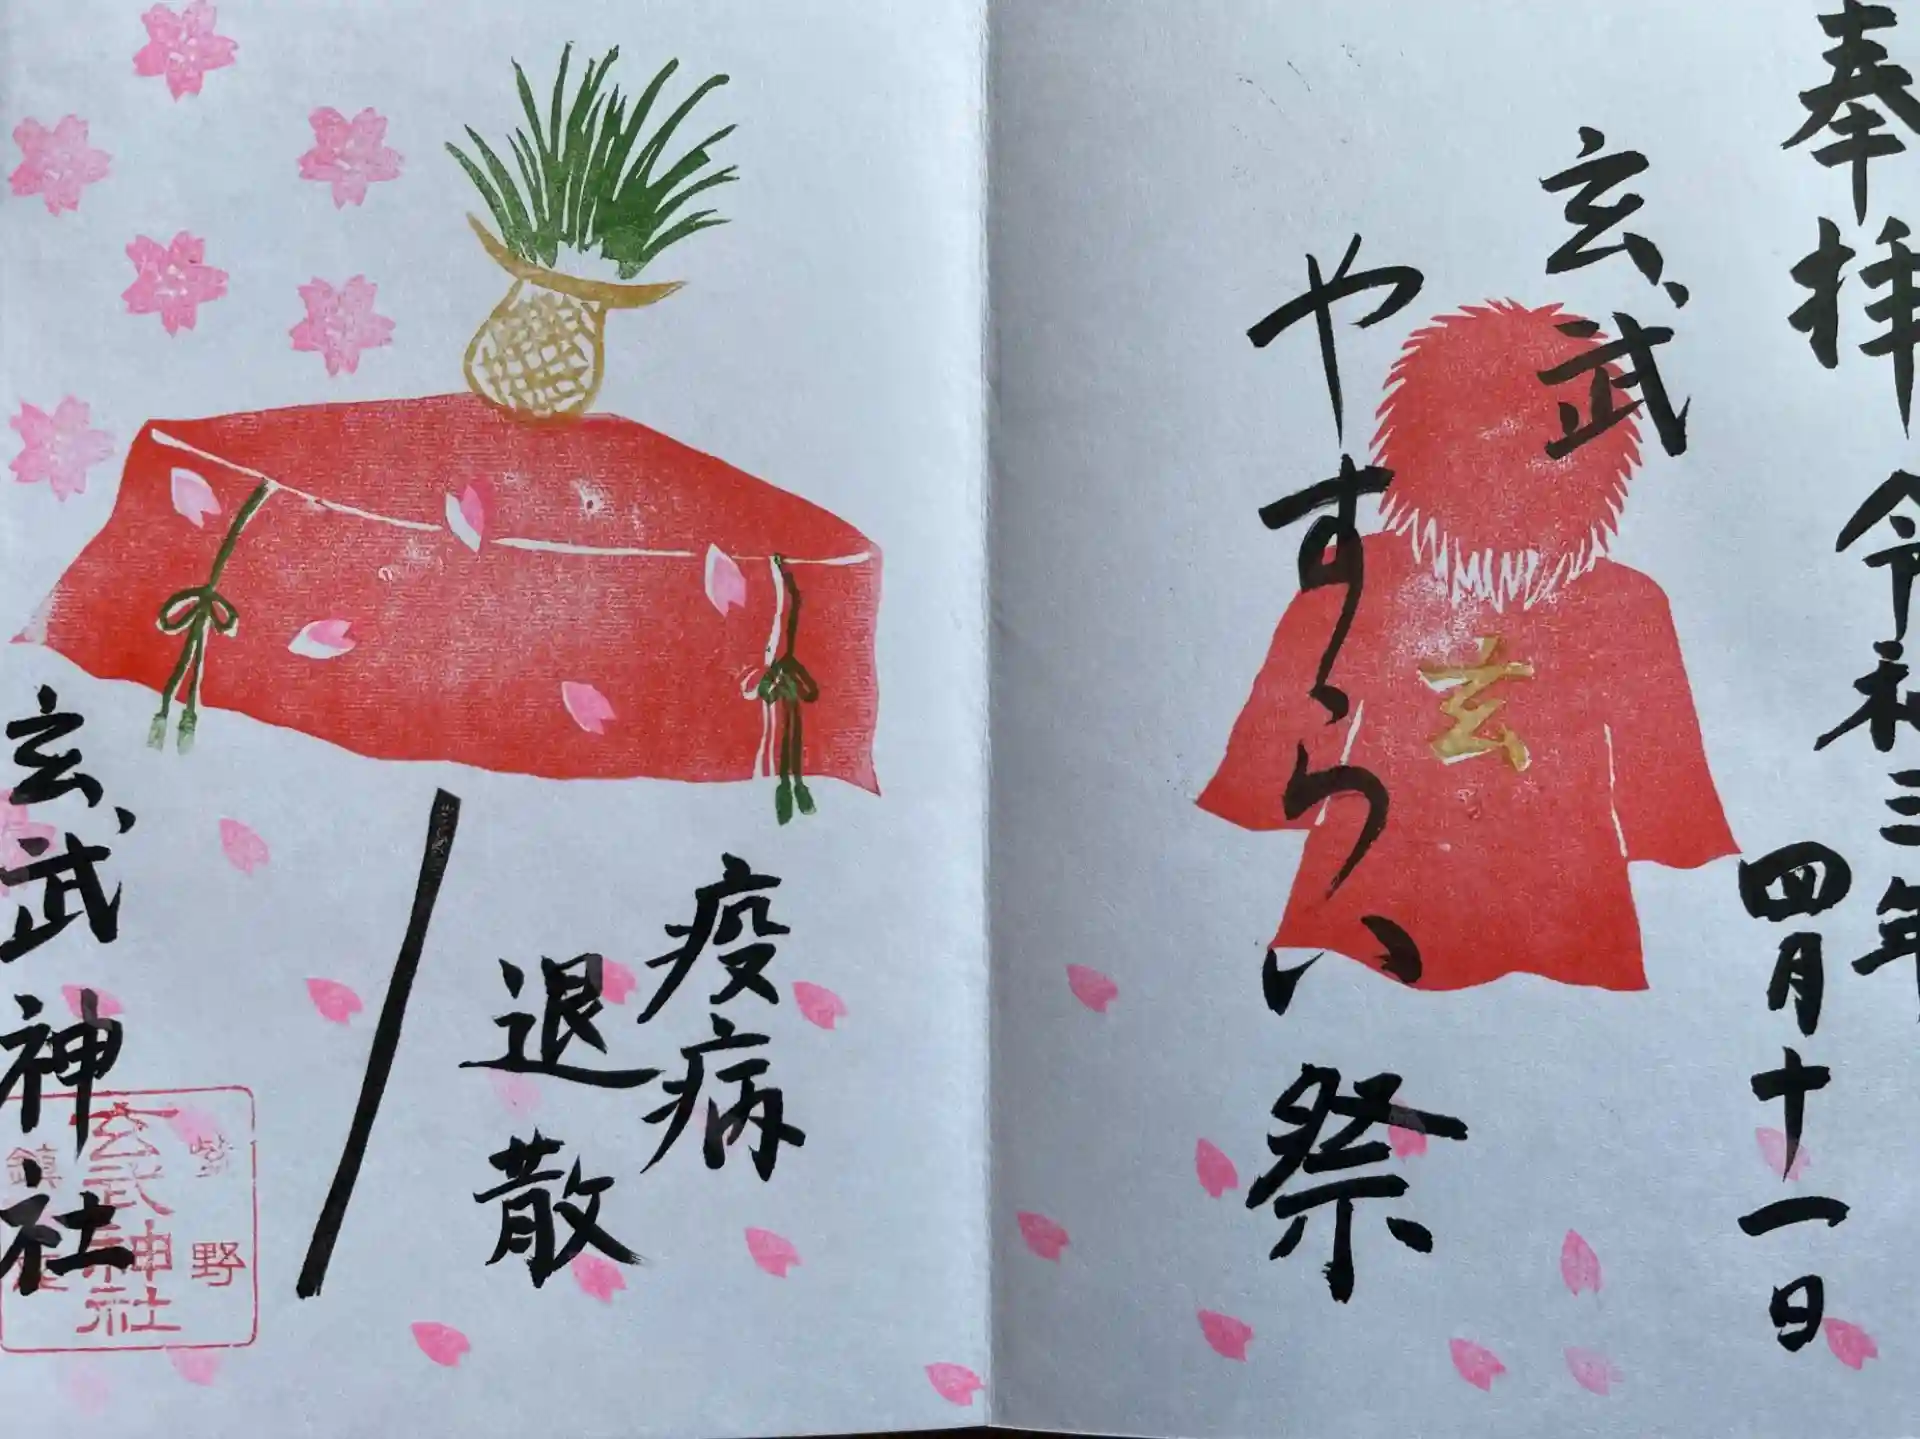 奉拝 令和三年
四月十一日
玄武
やすらい祭
玄
疫病
退散
玄武神社
紫野
玄武神社
鎮